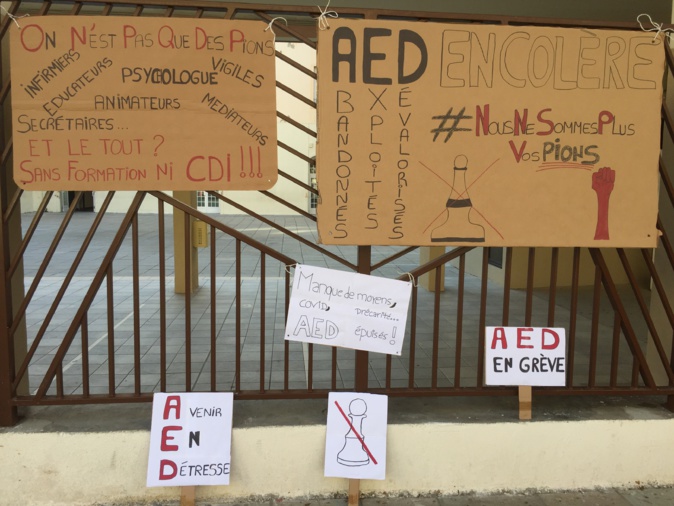 On N'est Pas Que Des Pions
INFIRMIERS
EDUCATEURS
PSYCOLOGUE
VIGILES
ANIMATEURS
MEDIATEURS
SECRÉTAIRES...
ET LE TOUT ?
SANS FORMATION NI CDI !!!
AED EN COLÈRE
ABANDONNÉS
EXPLOITÉS
DÉVALORISÉS
# Nous Ne Sommes Plus
Vos Pions
Manque de moyens,
covid, précarité...
AED épuisés !
AED
EN GRÈVE
AVENIR
EN
DÉTRESSE